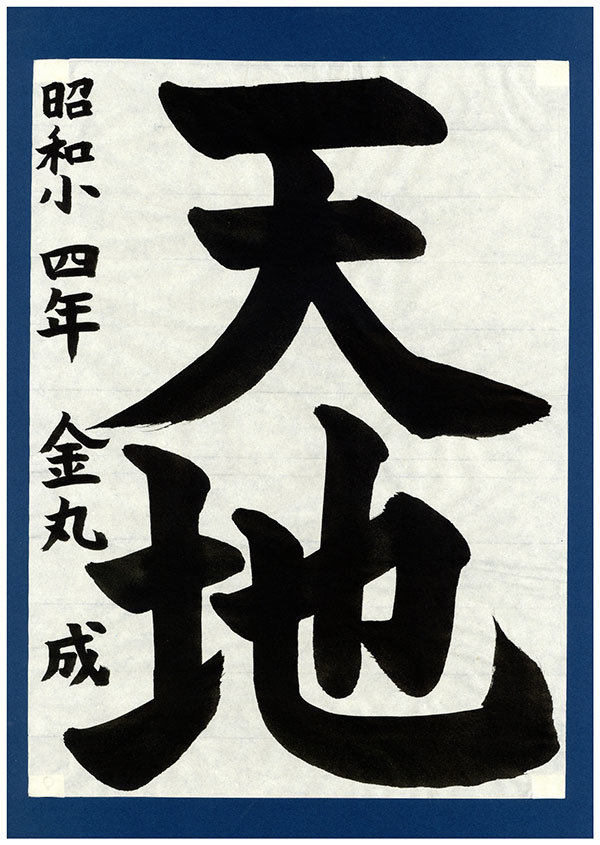 天地
昭和小 四年 金丸 成